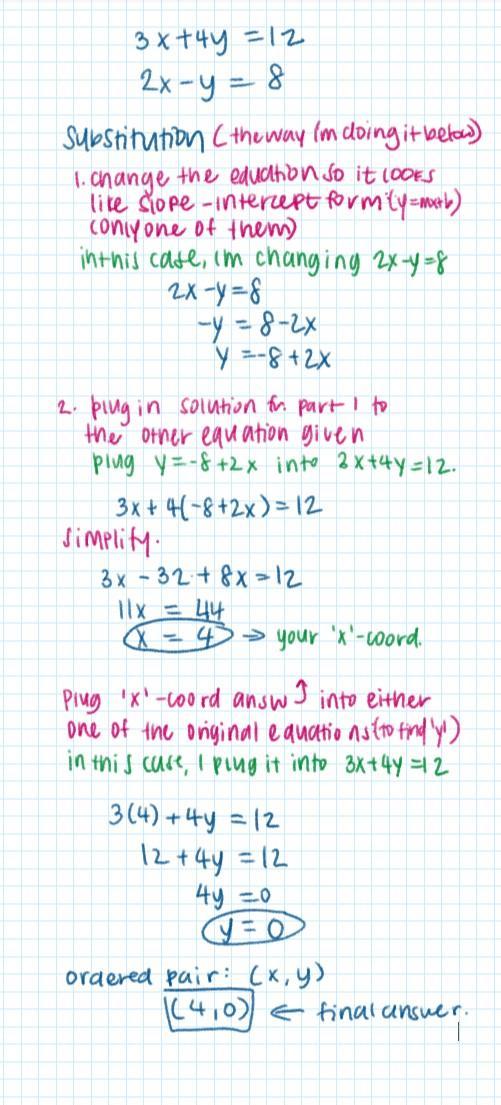 3x+4y=12
2x-y=8
Substitution (the way im doing it below)
1. change the equation so it looks
like slope-intercept form (y=mx+b)
(only one of them)
in this case, im changing 2x-y=8
2x-y=8
-y=8-2x
y=-8+2x
2. plug in solution fr. part 1 to
the other equation given
plug y=-8+2x into 3x+4y=12.
3x+4(-8+2x)=12
simplify.
3x-32+8x=12
11x=44
x=4 → your 'x'-coord.
Plug 'x'-coord answ ↑ into either
one of the original equations (to find 'y')
in this case, I plug it into 3x+4y=12
3(4)+4y=12
12+4y=12
4y=0
y=0
ordered pair: (x,y)
(4,0) ← final answer.